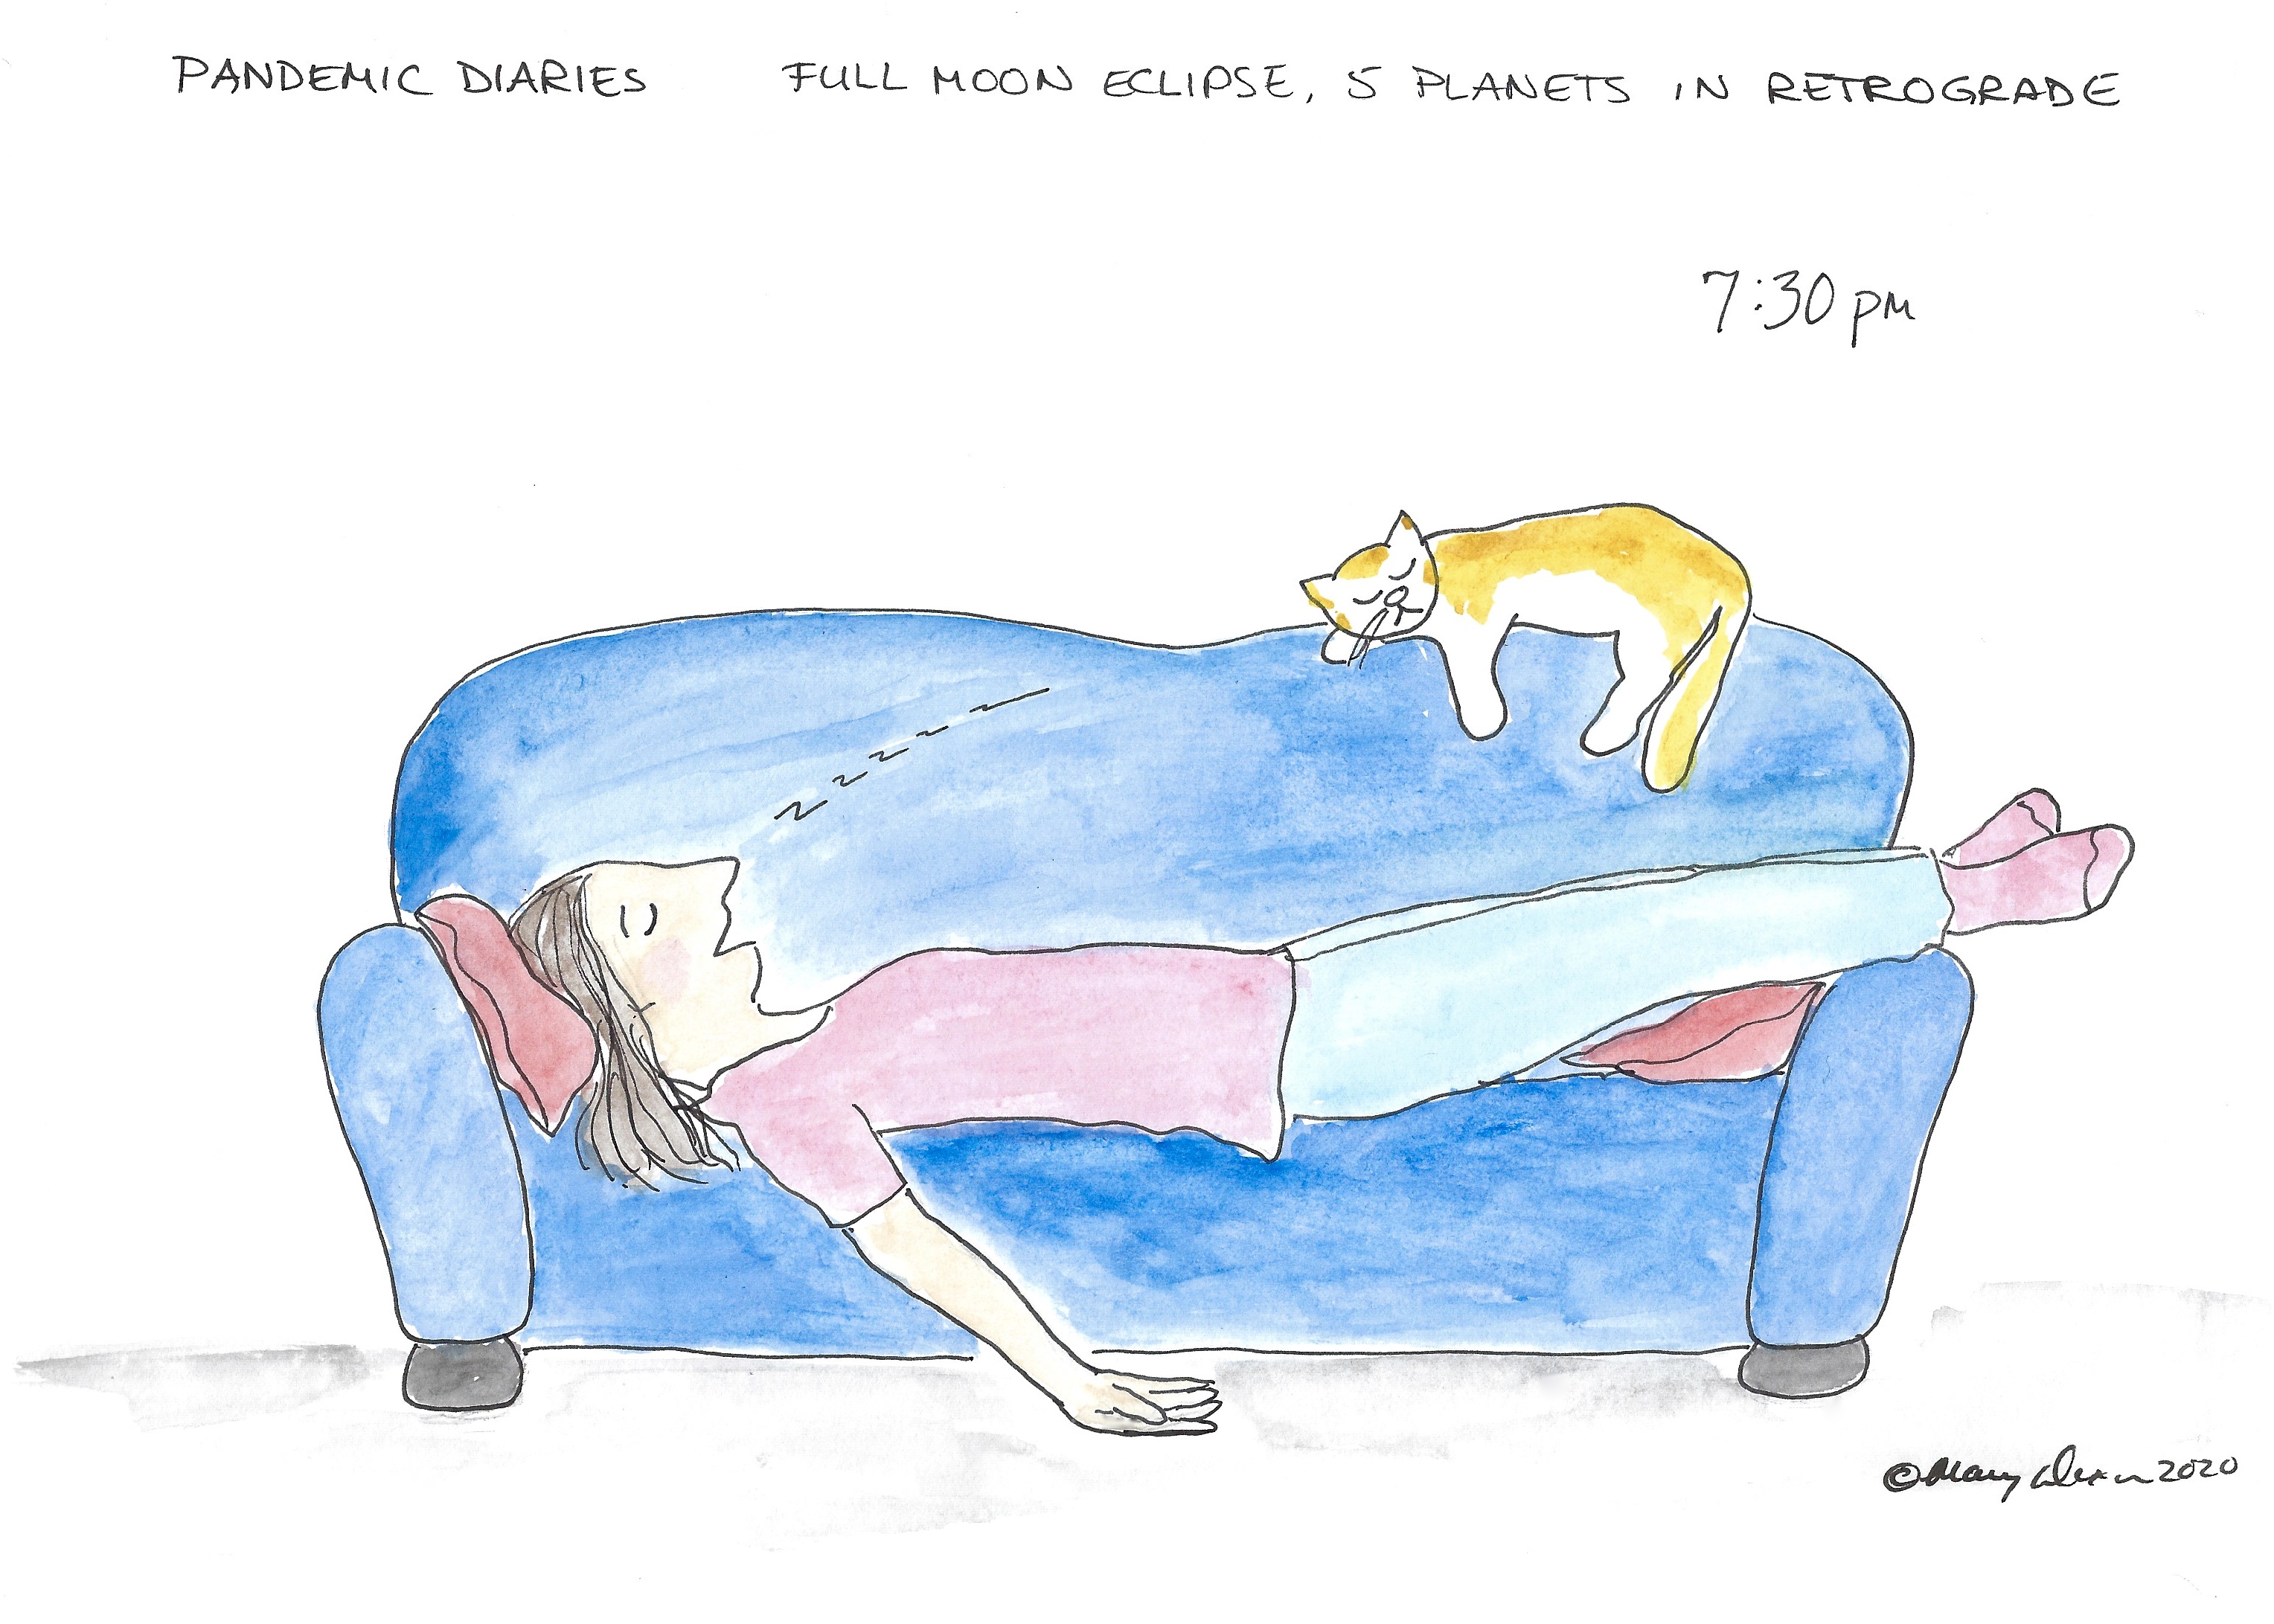 PANDEMIC DIARIES FULL MOON ECLIPSE, 5 PLANETS IN RETROGRADE
7:30 pm
zzzzz
© Mary 2020